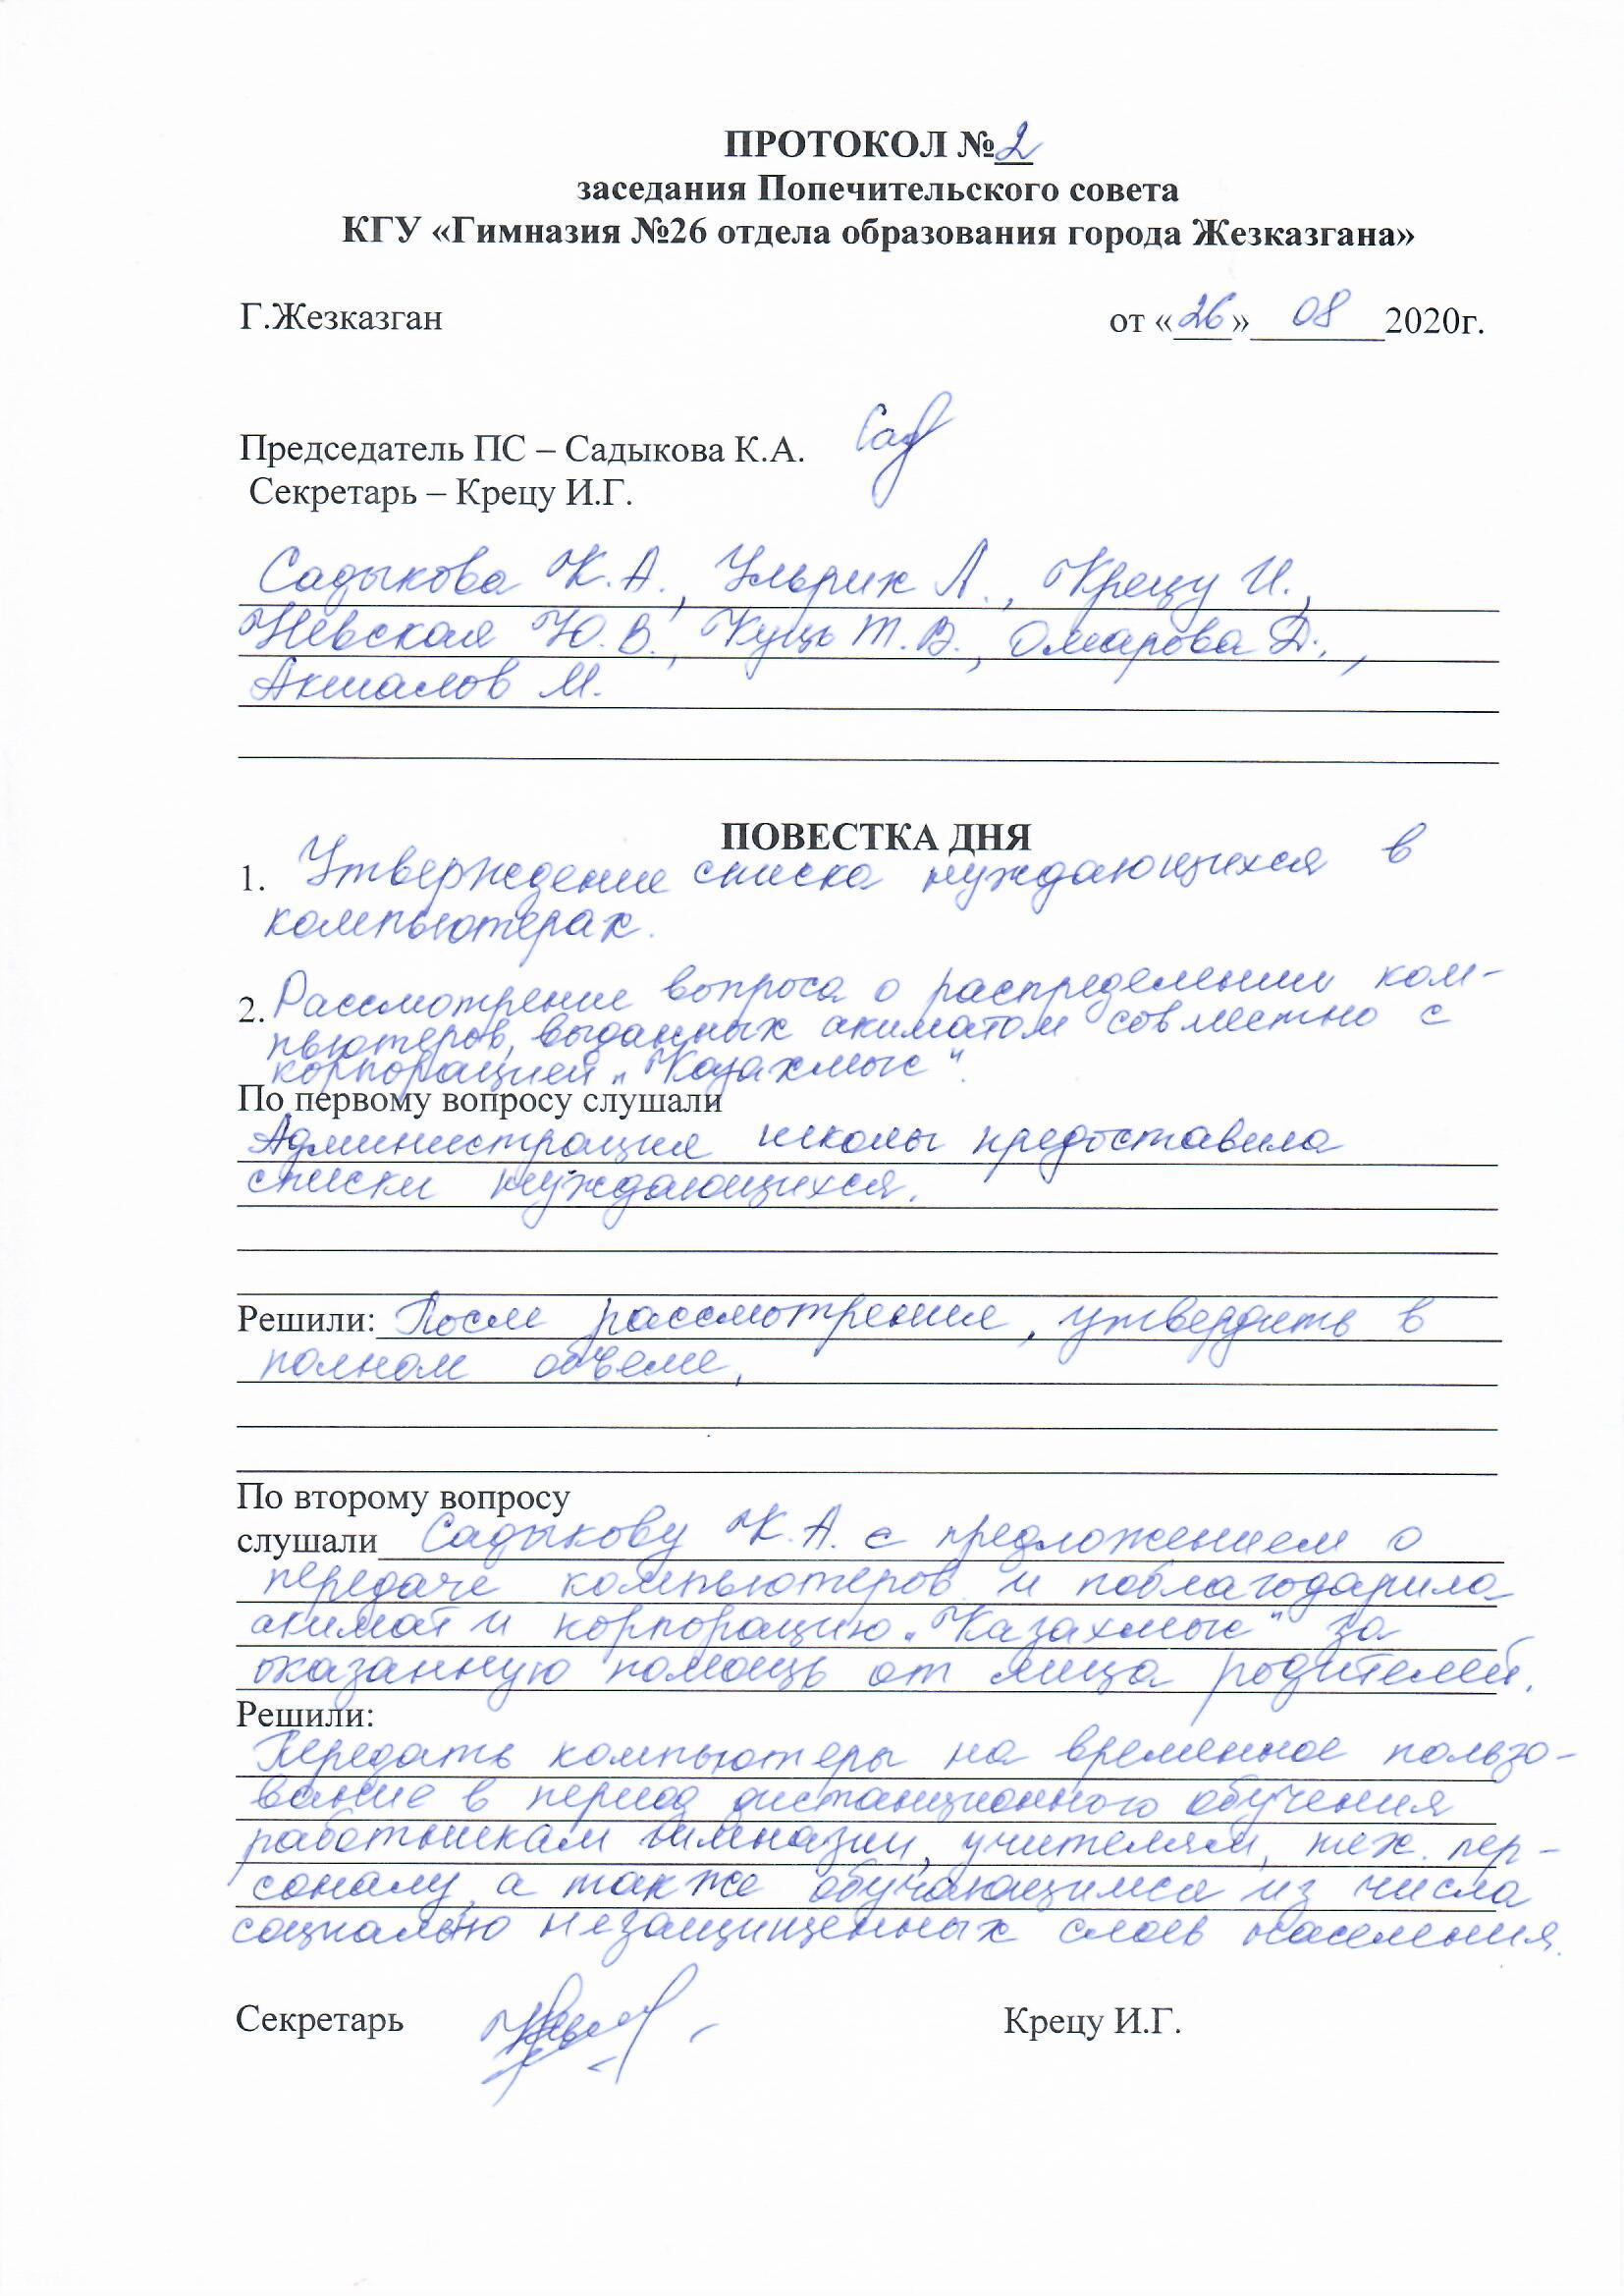 ПРОТОКОЛ №2
заседания Попечительского совета
КГУ «Гимназия №26 отдела образования города Жезказгана»
Г.Жезказган от «26» 08 2020г.
Председатель ПС – Садыкова К.А. Сад
Секретарь – Крецу И.Г.
Садыкова К.А., Ульрих Л., Крецу И.,
Невская Ю.В., Куць Т.В., Омарова Д.,
Акшалов М.
ПОВЕСТКА ДНЯ
1. Утверждение списка нуждающихся в
компьютерах.
2. Рассмотрение вопроса о распределении ком-
пьютеров, выданных акиматом совместно с
корпорацией „Казахмыс“.
По первому вопросу слушали
Администрация школы предоставила
списки нуждающихся.
Решили: После рассмотрения, утвердить в
полном объеме,
По второму вопросу
слушали Садыкову К.А. с предложением о
передаче компьютеров и поблагодарила
акимат и корпорацию „Казахмыс“ за
оказанную помощь от лица родителей.
Решили:
Передать компьютеры на временное пользо-
вание в период дистанционного обучения
работникам гимназии, учителям, тех. пер-
соналу, а также обучающимся из числа
социально незащищенных слоев населения.
Секретарь Крецу И.Г.